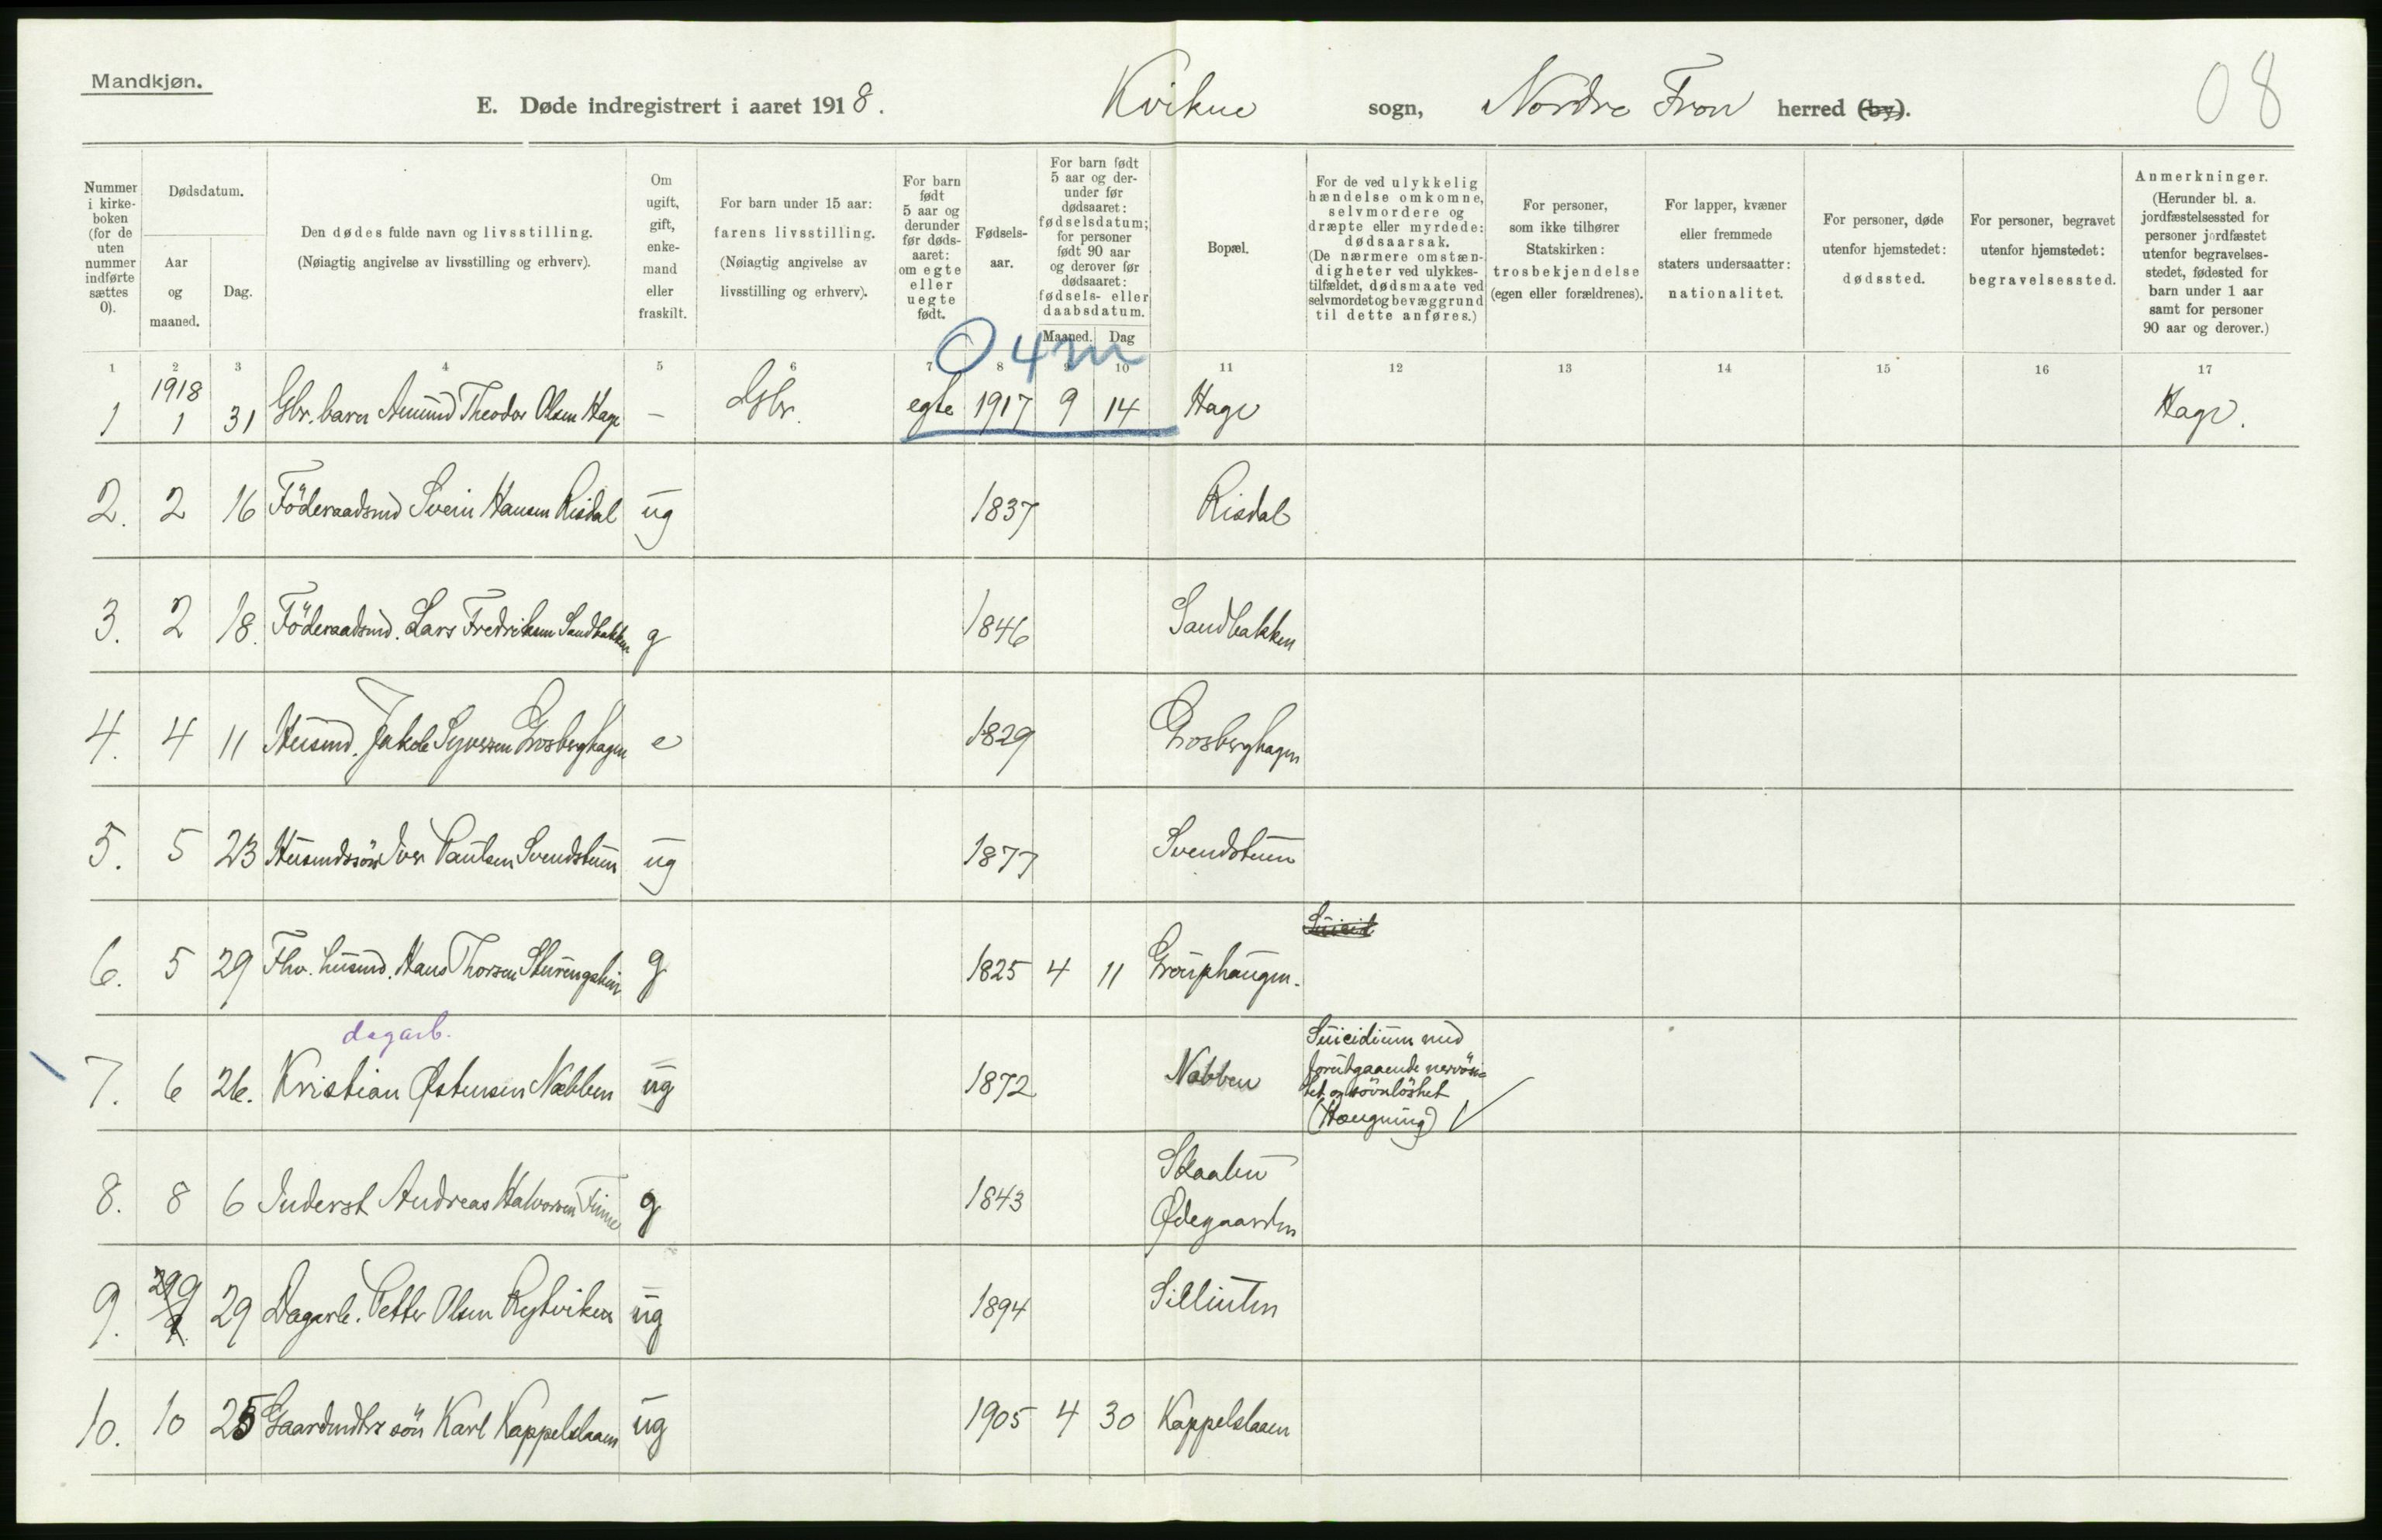 Mandkjøn.
E. Døde indregistrert i aaret 1918. Kvikne sogn, Nordre Fron herred (by).
08
Nummer i kirke-boken (for de uten nummer indførte sættes 0).
Dødsdatum.
Aar og maaned.
Dag.
Den dødes fulde navn og livsstilling.
(Nøiagtig angivelse av livsstilling og erhverv).
Om ugift, gift, enke-mand eller fraskilt.
For barn under 15 aar: farens livsstilling.
(Nøiagtig angivelse av livsstilling og erhverv).
For barn født 5 aar og derunder før døds-aaret: om egte eller uegte født.
Fødsels-aar.
For barn født 5 aar og der-under før dødsaaret: fødselsdatum; for personer født 90 aar og derover før dødsaaret: fødsels- eller daabsdatum.
Maaned. Dag
Bopæl.
For de ved ulykkelig hændelse omkomne, selvmordere og dræpte eller myrdede: dødsaarsak.
(De nærmere omstæn-digheter ved ulykkes-tilfældet, dødsmaate ved selvmordet og bevæggrund til dette anføres.)
For personer, som ikke tilhører Statskirken: trosbekjendelse (egen eller forældrenes).
For lapper, kvæner eller fremmede staters undersaatter: nationalitet.
For personer, døde utenfor hjemstedet: dødssted.
For personer, begravet utenfor hjemstedet: begravelsessted.
Anmerkninger.
(Herunder bl. a. jordfæstelsessted for personer jordfæstet utenfor begravelses-stedet, fødested for barn under 1 aar samt for personer 90 aar og derover.)
0 4 m
1 2 3 4 5 6 7 8 9 10 11 12 13 14 15 16 17
1918
1 1 31 Gbr. barn Amund Theodor Olsen Hage — Gbr. egte 1917 9 14 Hage Hage.
2. 2 16 Föderaadsmd Svein Hansen Risdal ug 1837 Risdal
3. 2 18. Föderaadsmd. Lars Fredriksen Sandbakken g 1846 Sandbakken
4. 4 11 Husmd. Jakob Syversen Grosberghagen e 1829 Grosberghagen
5. 5 23 Husmdssön Iver Paulsen Svendstuen ug 1877 Svendstuen
Suicid
6. 5 29 Fhv. husmd. Hans Thorsen g 1825 4 11
dagarb.
7. 6 26. Kristian Østensen Nabben ug 1872 Nabben Suicidium med
forutgaaende nervösi-
tet og sövnlöshet
(Hængning) √
8. 8 6 Inderst Andreas Halvorsen g 1843 Skaabu
Ødegaarden
9. 9 29 Dagarb. Petter Olsen Rytviken ug 1894
10. 10 25 Gaardmdbrs sön Karl Kappelslaaen ug 1905 4 30 Kappelslaaen